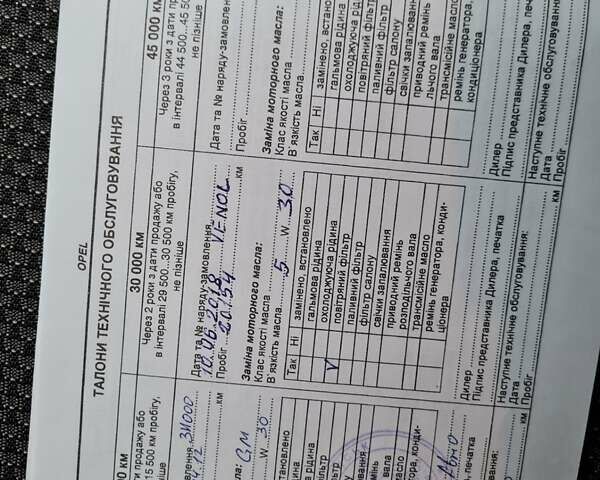 OPEL
ТАЛОНИ ТЕХНІЧНОГО ОБСЛУГОВУВАННЯ
45 000 КМ
Через 3 роки з дати продажу або
в інтервалі 44 500...45 500
не пізніше
Дата та № наряду-замовлення
Пробіг
Заміна моторного масла:
Клас якості масла
В'язкість масла
Так Ні
замінено, встановлено
гальмова рідина
охолоджуюча рідина
повітряний фільтр
паливний фільтр
фільтр салону
свічки запалювання
приводний ремінь
льчого вала
трансмісійне масло
ремінь генератора,
кондиціонера
Дилер
Підпис представника Дилера, печатка
Наступне технічне обслуговування:
Дата
Пробіг
30 000 КМ
Через 2 роки з дати продажу або
в інтервалі 29 500...30 500 км пробігу,
не пізніше
Дата та № наряду-замовлення
10.06.2018 VENOL
Пробіг 20154 км
Заміна моторного масла:
Клас якості масла
В'язкість масла 5 W 30
Так Ні
замінено, встановлено
гальмова рідина
V охолоджуюча рідина
повітряний фільтр
паливний фільтр
фільтр салону
свічки запалювання
приводний ремінь
розподільчого вала
трансмісійне масло
ремінь генератора, конди-
ціонера
Дилер
Підпис представника Дилера, печатка
Наступне технічне обслуговування:
Дата
Пробіг км
00 КМ
ти продажу або
15 500 км пробігу,
км
GM
W 30
встановлено
рідина
км